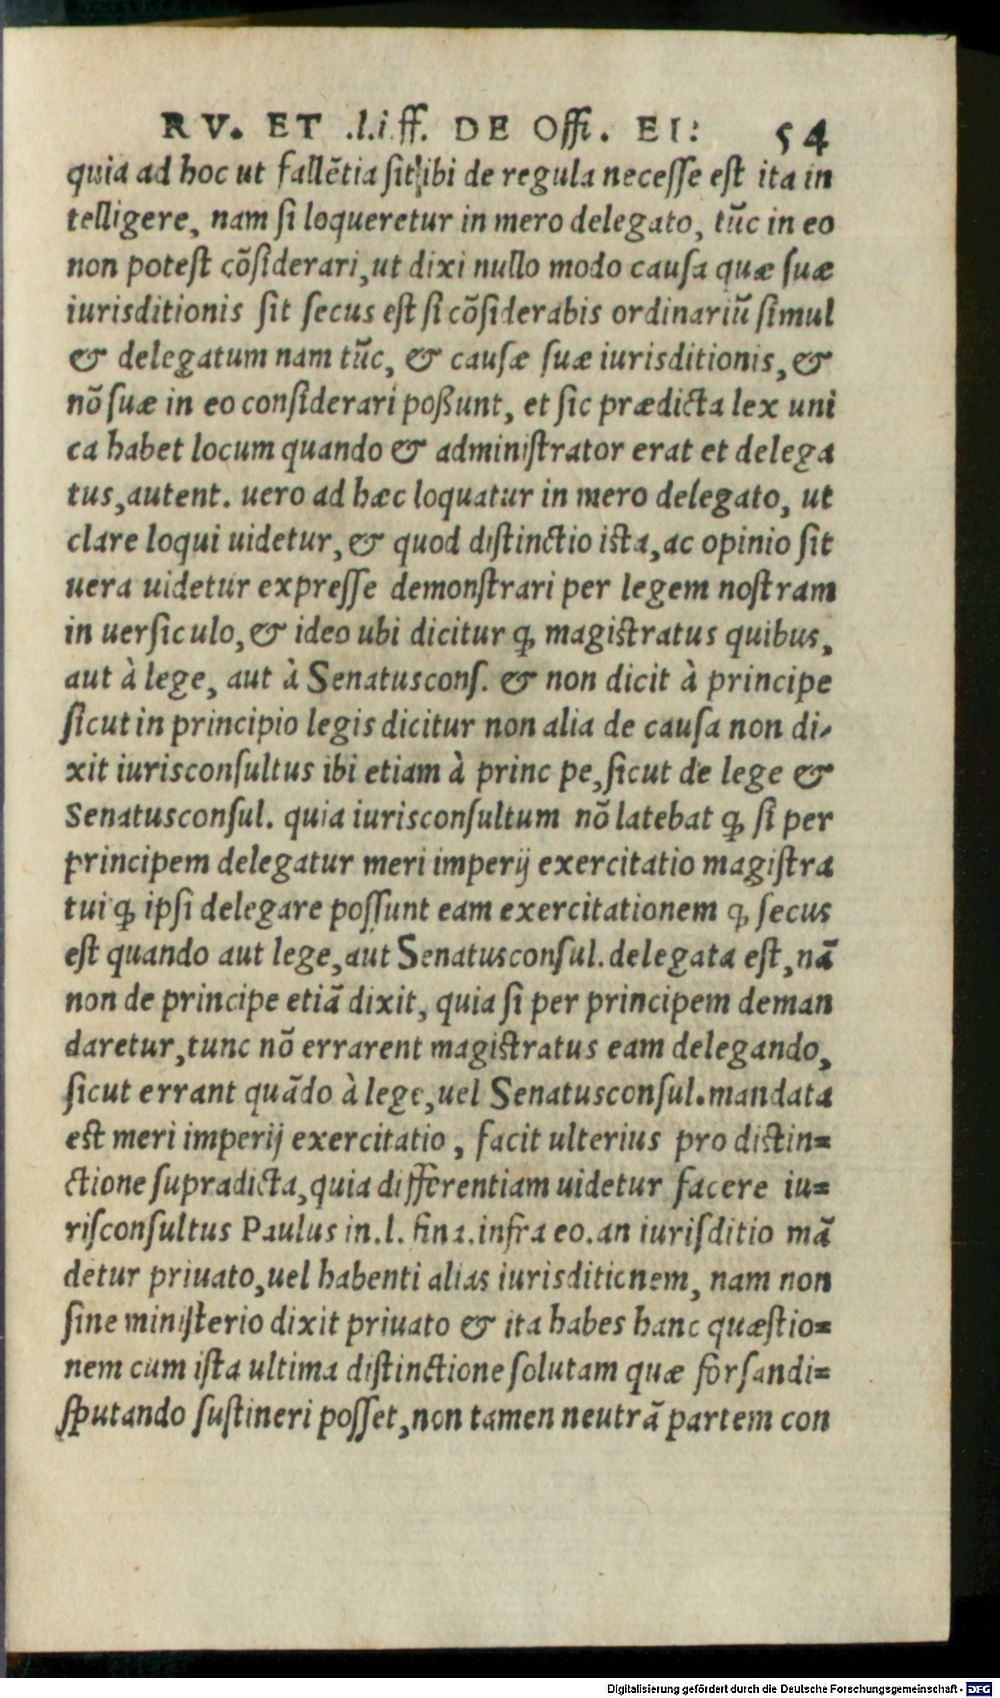 RV. ET .l.i ff. DE Offi. EI: 54
quia ad hoc ut fallētia ſit ibi de regula neceſſe eſt ita in
telligere, nam ſi loqueretur in mero delegato, tūc in eo
non poteſt cōſiderari, ut dixi nullo modo cauſa quæ ſuæ
iurisditionis ſit ſecus eſt ſi cōſiderabis ordinariū ſimul
& delegatum nam tūc, & cauſæ ſuæ iurisditionis, &
nō ſuæ in eo conſiderari poßunt, et ſic prædicta lex uni
ca habet locum quando & adminiſtrator erat et delega
tus, autent. uero ad hæc loquatur in mero delegato, ut
clare loqui uidetur, & quod diſtinctio iſta, ac opinio ſit
uera uidetur expreſſe demonſtrari per legem noſtram
in uerſiculo, & ideo ubi dicitur ꝙ magiſtratus quibus,
aut à lege, aut à Senatusconſ. & non dicit à principe
ſicut in principio legis dicitur non alia de cauſa non di-
xit iurisconſultus ibi etiam à princ pe, ſicut de lege &
Senatusconſul. quia iurisconſultum nō latebat ꝙ ſi per
principem delegatur meri imperij exercitatio magiſtra
tui ꝙ ipſi delegare poſſunt eam exercitationem ꝙ ſecus
eſt quando aut lege, aut Senatusconſul. delegata eſt, nā
non de principe etiā dixit, quia ſi per principem deman
daretur, tunc nō errarent magiſtratus eam delegando,
ſicut errant quādo à lege, uel Senatusconſul. mandata
eſt meri imperij exercitatio, facit ulterius pro diſtin=
ctione ſupradicta, quia differentiam uidetur facere iu=
riſconſultus Paulus in. l. fina. infra eo. an iuriſditio mā
detur priuato, uel habenti alias iurisditionem, nam non
ſine miniſterio dixit priuato & ita habes hanc quæſtio=
nem cum iſta ultima diſtinctione ſolutam quæ forſan di=
ſputando ſuſtineri poſſet, non tamen neutrā partem con
Digitalisierung gefördert durch die Deutsche Forschungsgemeinschaft - DFG